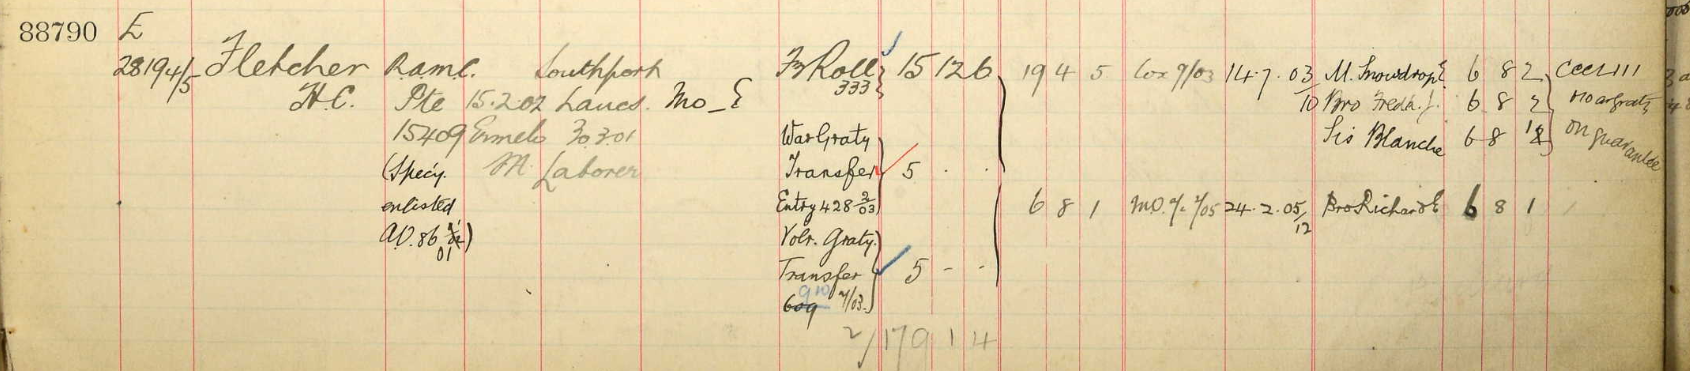 88790 E
28194/5 Fletcher R.A.M.C. Southport Fr Roll 15 12 6 19 4 5 Cox 7/03 14.7.03 M. Snowdrop E 6 8 2
333
H.C. Pte 15.202 Lancs. Mo_E /10 Bro Fredk. J. 6 8 2 No war graty
15409 Ermelo 30.3.01 War Graty Sis Blanche 6 8 1 on guarantee
(Specy. M. Laborer Transfer 5 . .
enlisted Entry 428 2/03 6 8 1 M.O. 7/05 24.2.05 Bro Richard E 6 8 1
/12
A.O. 86 01) Volr. Graty.
Transfer 5 - -
910 7/03
2/17 9 1 4